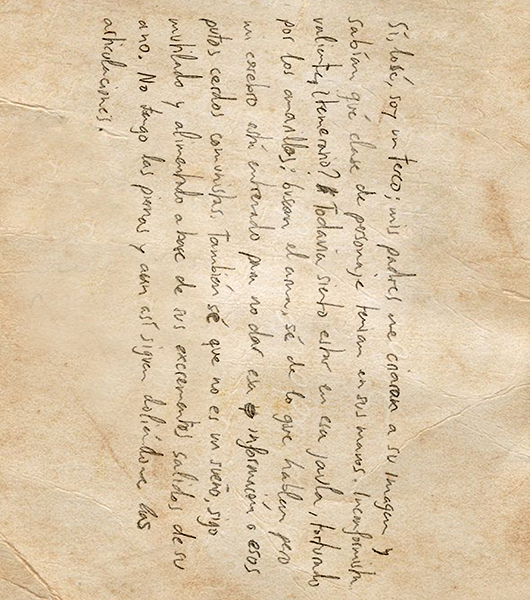 Sí, José, soy un terco; mis padres me criaron a su imagen y
sabían qué clase de personaje tenían en sus manos. Inconformista,
valiente, ¿temerario? Todavía siento estar en esa jaula, torturado
por los amarillos: buscan el arma, sé de lo que hablan, pero
mi cerebro está entrenado para no dar esa información a esos
putos cerdos comunistas. También sé que no es un sueño, sigo
mutilado y alimentado a base de sus excrementos salidos de su
ano. No tengo las piernas y aun así siguen doliéndome las
articulaciones.